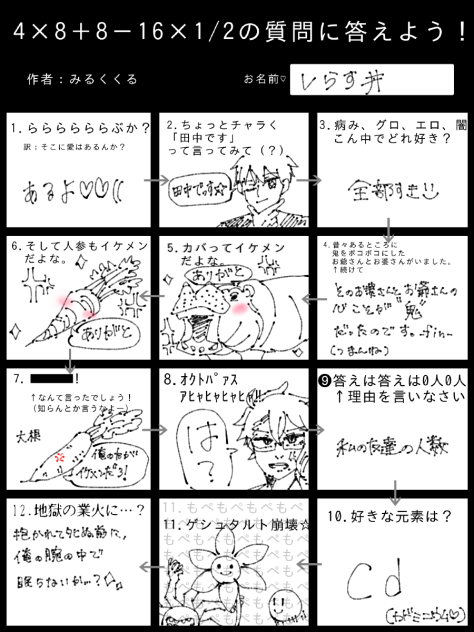 4×8+8－16×1/2の質問に答えよう！
作者：みるくくる
お名前♡
しらす丼
1.らららららぶか？
訳：そこに愛はあるんか？
あるよ♡♡((
2.ちょっとチャラく
「田中です」
って言ってみて（？）
田中です☆
3.病み、グロ、エロ、闇
こん中でどれ好き？
全部すき
4.昔々あるところに
鬼をボコボコにした
お爺さんとお婆さんがいました。
↑続けて
そのお婆さんとお爺さんの
心こそが"鬼"
だったのです。-fin-
(つまんね)
5.カバってイケメン
だよな。
ありがと
6.そして人参もイケメン
だよな。
ありがと
7.!
↑なんて言ったでしょう！
（知らんとか言うなよー）
大根
俺のがイケメンだろ！
8.ｵｸﾄﾊﾟｧｽ
ｱﾋｬﾋｬﾋｬﾋｬ!!
は？
❾答えは答えは0人0人
↑理由を言いなさい
私の友達の人数
10.好きな元素は？
Cd
(カドミニウム♡)
11.もぺもぺもぺもぺ
11.ゲシュタルト崩壊☆
12.地獄の業火に…？
抱かれて死ぬ前に、
俺の腕の中で
眠らないか…？